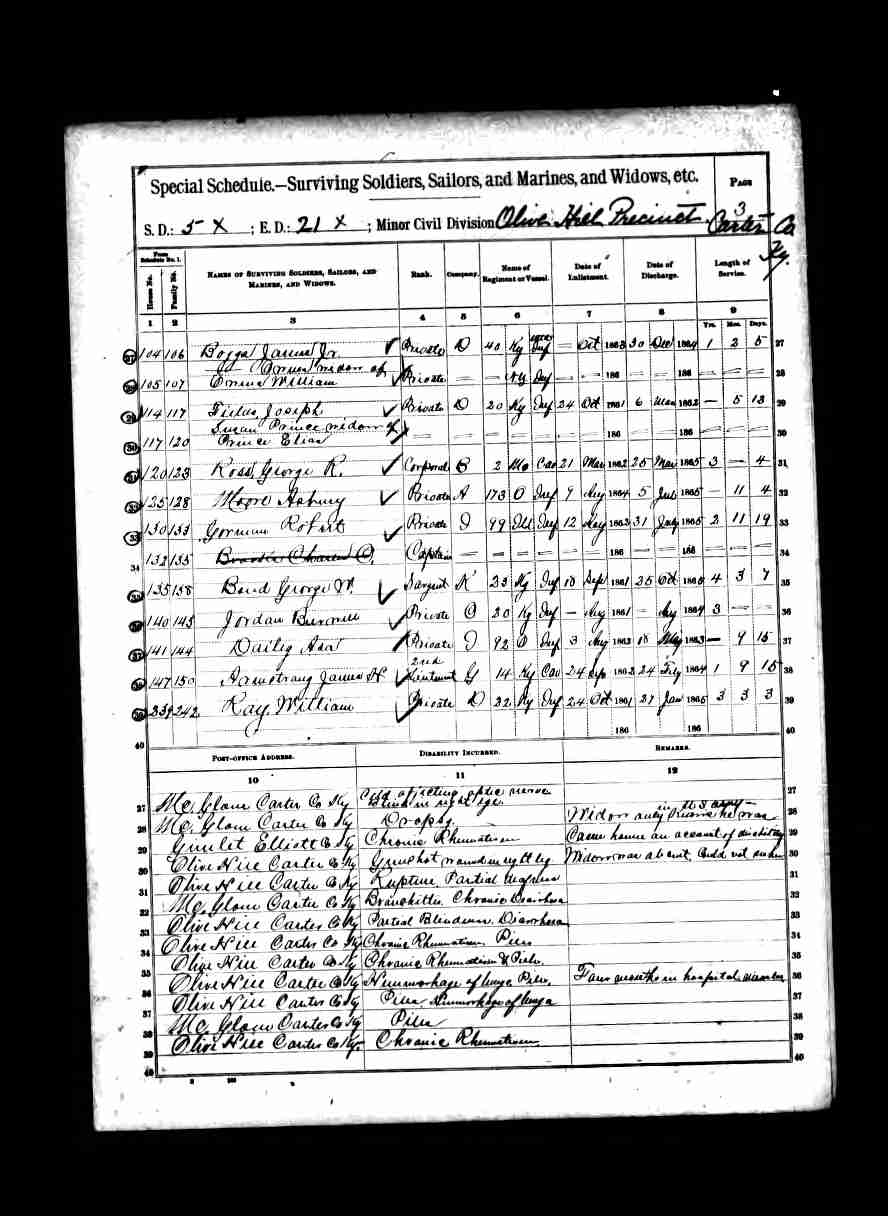 Special Schedule.—Surviving Soldiers, Sailors, and Marines, and Widows, etc.
PAGE 3
S. D.: 5 X ; E. D.: 21 X ; Minor Civil Division Olive Hill Precinct, Carter Co Ky.
From Schedule No. 1.
House No. Family No. NAMES OF SURVIVING SOLDIERS, SAILORS, AND MARINES, AND WIDOWS. Rank. Company. Name of Regiment or Vessel. Date of Enlistment. Date of Discharge. Length of Service.
1 2 3 4 5 6 7 8 9
Yrs. Mos. Days.
27 104 106 Boggs James Jr. Private D 40 Ky Inf — Oct 1863 30 Dec 1864 1 2 5 27
widow of
28 105 107 William Private — — Ky Inf — 186 — 186 — — — 28
29 114 117 Fields Joseph Private D 20 Ky Inf 24 Oct 1861 6 Mar 1862 — 5 13 29
Susan Prince widow of
30 117 120 Prince Elias — — — — — — — 186 — — 186 — — — 30
31 120 123 Ross, George R. Corporal 2 Mo Cav 21 Mar 1862 25 Mar 1865 3 — 4 31
32 125 128 Moore Asbury Private A 173 O Inf 9 Aug 1864 5 1865 — 11 4 32
33 130 133 Gorman Robert Private I 99 Ill Inf 12 Aug 1862 31 July 1865 2 11 19 33
34 132 135 Captain — — — — — — 186 — — 186 — — — 34
35 135 138 Bond George W. Sargent K 23 Ky Inf 18 Sep 1861 25 Oct 1865 4 3 7 35
36 140 143 Jordan Private 20 Ky Inf — Aug 1861 — Aug 1864 3 — — 36
37 141 144 Dailey Asa Private I 92 O Inf 3 Aug 1862 18 May 1863 — 9 15 37
2nd
38 147 150 Armstrong James H Lieutenant G 14 Ky Cav 24 Sep 1862 24 1864 1 9 15 38
39 239 242 Kay William Private D 22 Ky Inf 24 Oct 1861 27 Jan 1865 3 3 3 39
40 186 186 40
POST-OFFICE ADDRESS. DISABILITY INCURRED. REMARKS.
10 11 12
27 Mc. Glone Carter Co Ky Cold affecting optic nerve 27
Blind in right eye.
28 Mc. Glone Carter Co Ky Dropsy. Widow only knows he was in the army 28
29 Gimlet Elliott Co Ky Chronic Rheumatism Came home on account of disability 29
30 Olive Hill Carter Co Ky Gunshot wound in right leg Widow was absent, could not 30
31 Olive Hill Carter Co Ky Rupture. Partial 31
32 Mc. Glone Carter Co Ky Bronchitis. Chronic Diarrhoea 32
33 Olive Hill Carter Co Ky Partial Blindness. Diarrhoea 33
34 Olive Hill Carter Co Ky Chronic Rheumatism. Piles 34
35 Olive Hill Carter Co Ky Chronic Rheumatism & Piles. 35
36 Olive Hill Carter Co Ky Hemmorhage of lungs Piles. Four months in hospital 36
37 Olive Hill Carter Co Ky Piles Hemmorhage of lungs 37
38 Mc. Glone Carter Co Ky Piles 38
39 Olive Hill Carter Co Ky. Chronic Rheumatism 39
40 40